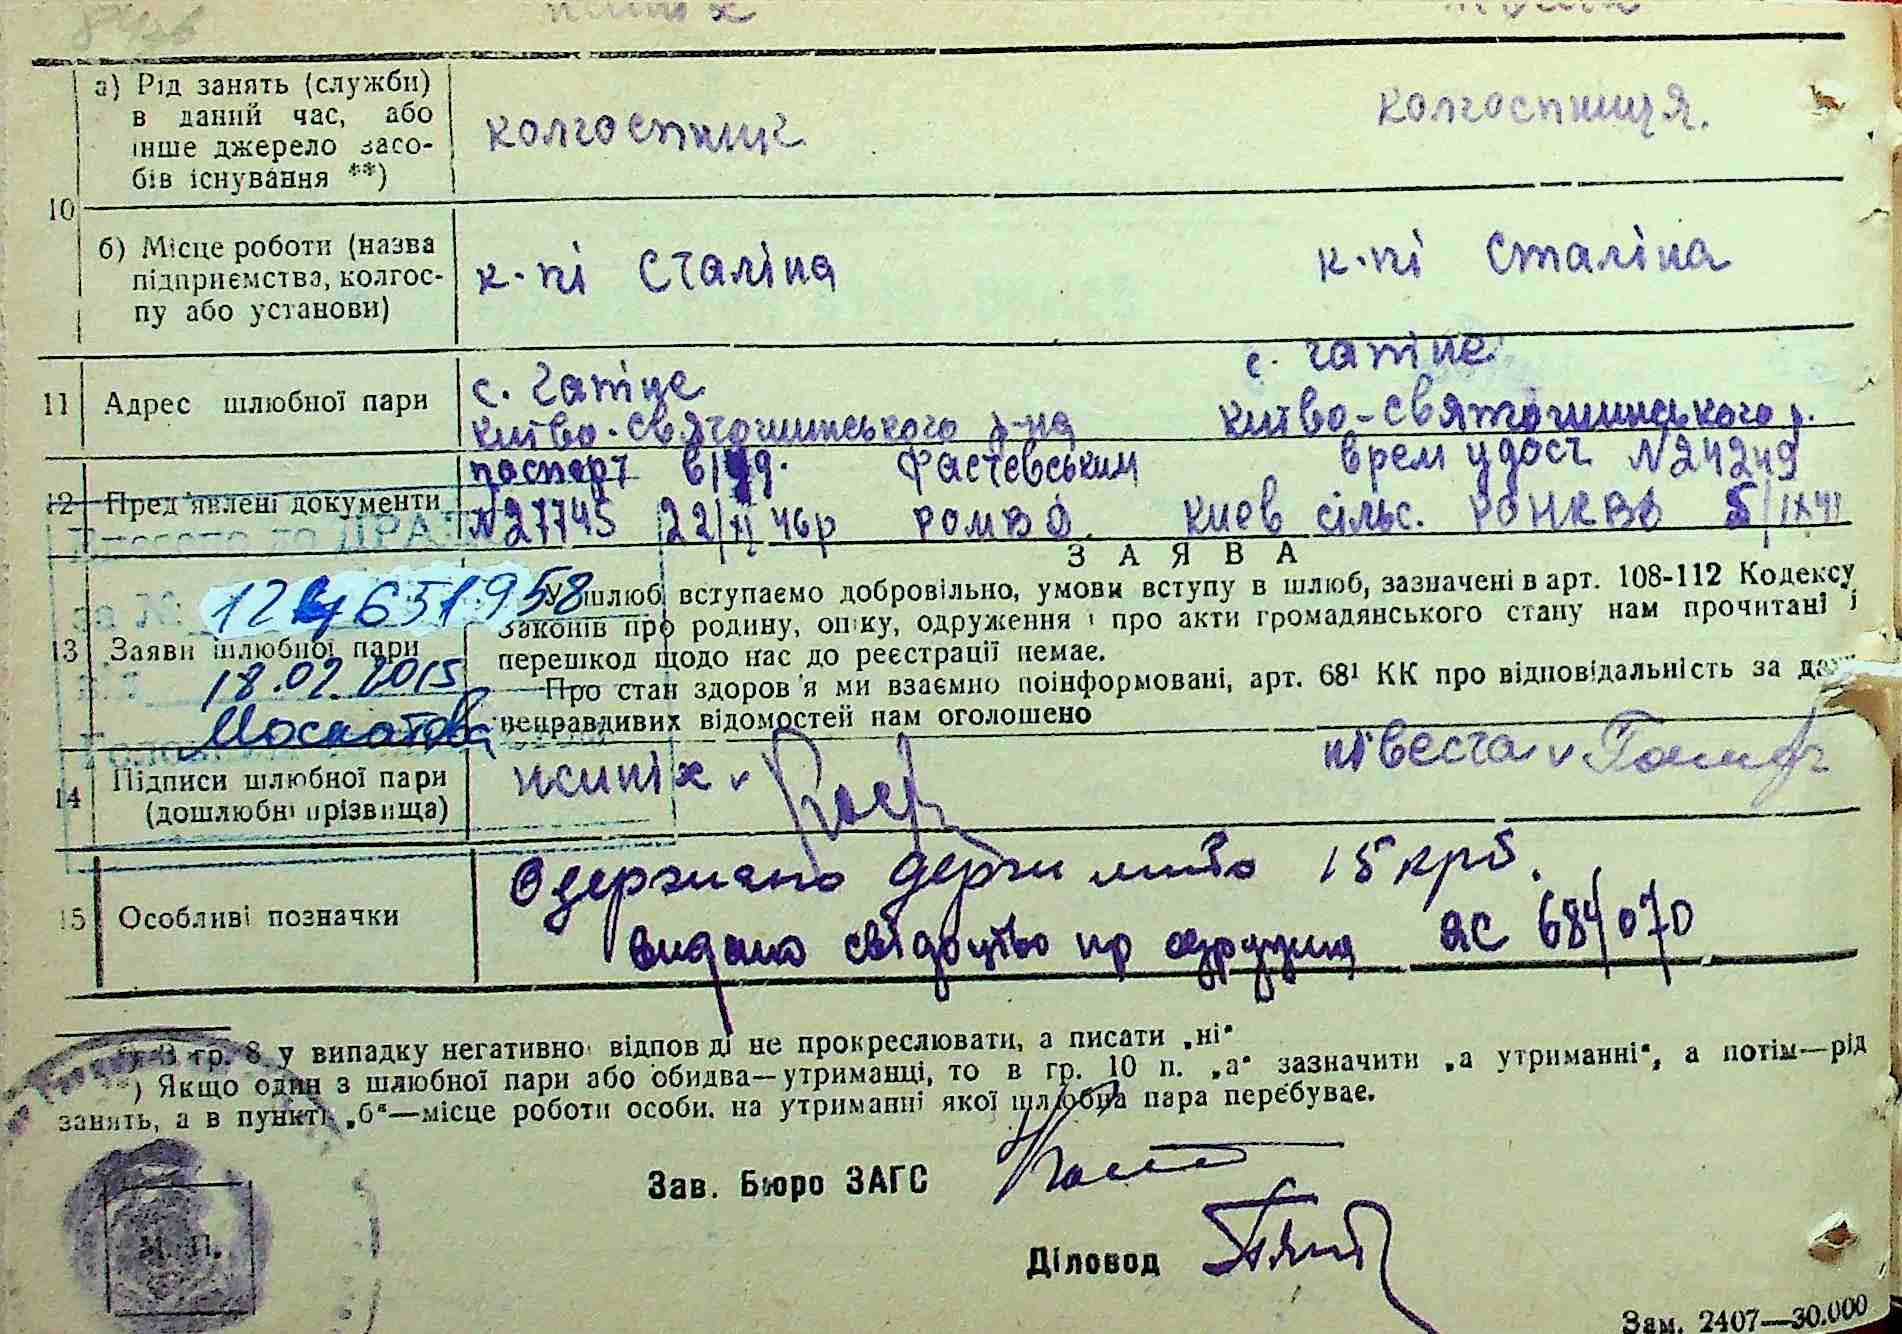 жиніх
10 а) Рід занять (служби) в даний час, або інше джерело засобів існування **)
колгоспник колгоспниця.
б) Місце роботи (назва підприємства, колгоспу або установи)
к-пі Сталіна к-пі Сталіна
11 Адрес шлюбної пари
с. Гатне с. Гатне
Києво-Святошинського р-на Києво-Святошинського р.
12 Пред'явлені документи
паспорт Фастевським врем удост N24249
N27745 22/ 46р РОМВД. Киев сільс. РОНКВД 5/IX41
ЗАЯВА
13 Заяви шлюбної пари
У шлюб вступаємо добровільно, умови вступу в шлюб, зазначені в арт. 108-112 Кодексу
Законів про родину, опіку, одруження і про акти громадянського стану нам прочитані і
перешкод щодо нас до реєстрації немає.
Про стан здоров'я ми взаємно поінформовані, арт. 68¹ КК про відповідальність за
неправдивих відомостей нам оголошено
18.02.2015
14 Підписи шлюбної пари (дошлюбні прізвища)
жиніх v нівеста v
15 Особливі позначки
Одержано держ мито 15 крб.
видано свідоцтво пр одруженя ЯС 684070
*) В гр. 8 у випадку негативної відповіді не прокреслювати, а писати „ні"
**) Якщо один з шлюбної пари або обидва—утриманці, то в гр. 10 п. „а" зазначити „а утриманні", а потім—рід
занять, а в пункті „б"—місце роботи особи, на утриманні якої шлюбна пара перебуває.
Зав. Бюро ЗАГС
М. П.
Діловод
Зам. 2407—30.000